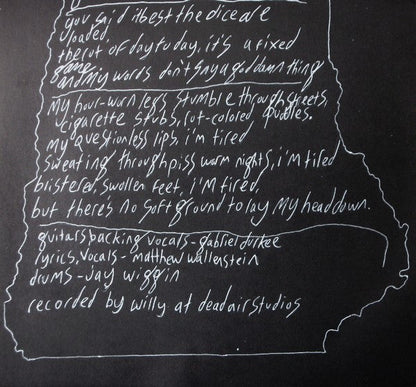 you said it best the dice are
loaded.
the rut of day to day, it's a fixed
game.
and my words don't say a goddamn thing
my hour-worn legs stumble through streets,
cigarette stubs, rot-colored puddles.
my questionless lips, i'm tired
sweating through piss warm nights, i'm tired
blistered, swollen feet, i'm tired,
but theres no soft ground to lay my head down.
guitars backing vocals - gabriel durkee
lyrics, vocals - matthew wallenstein
drums - jay wiggin
recorded by willy at dead air studios